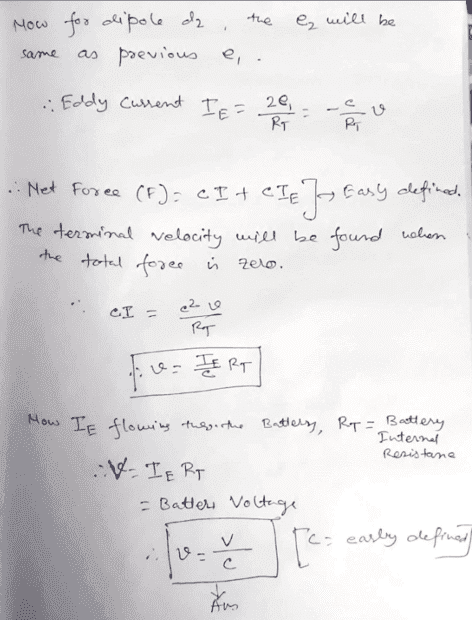 Now for dipole d2, the e2 will be
same as previous e1.
∴ Eddy Current IE = 2e1/RT = -c/RT v
∴ Net Force (F) = cI + cIE] → Early defined.
The terminal velocity will be found when
the total force is zero.
∴ cI = c² v/RT
∴ v = IE/c RT
Now IE flowing thro. the Battery, RT = Battery
Internal
Resistance
∴ V = IE RT
= Battery Voltage
∴ v = V/c [c = early defined]
Ans